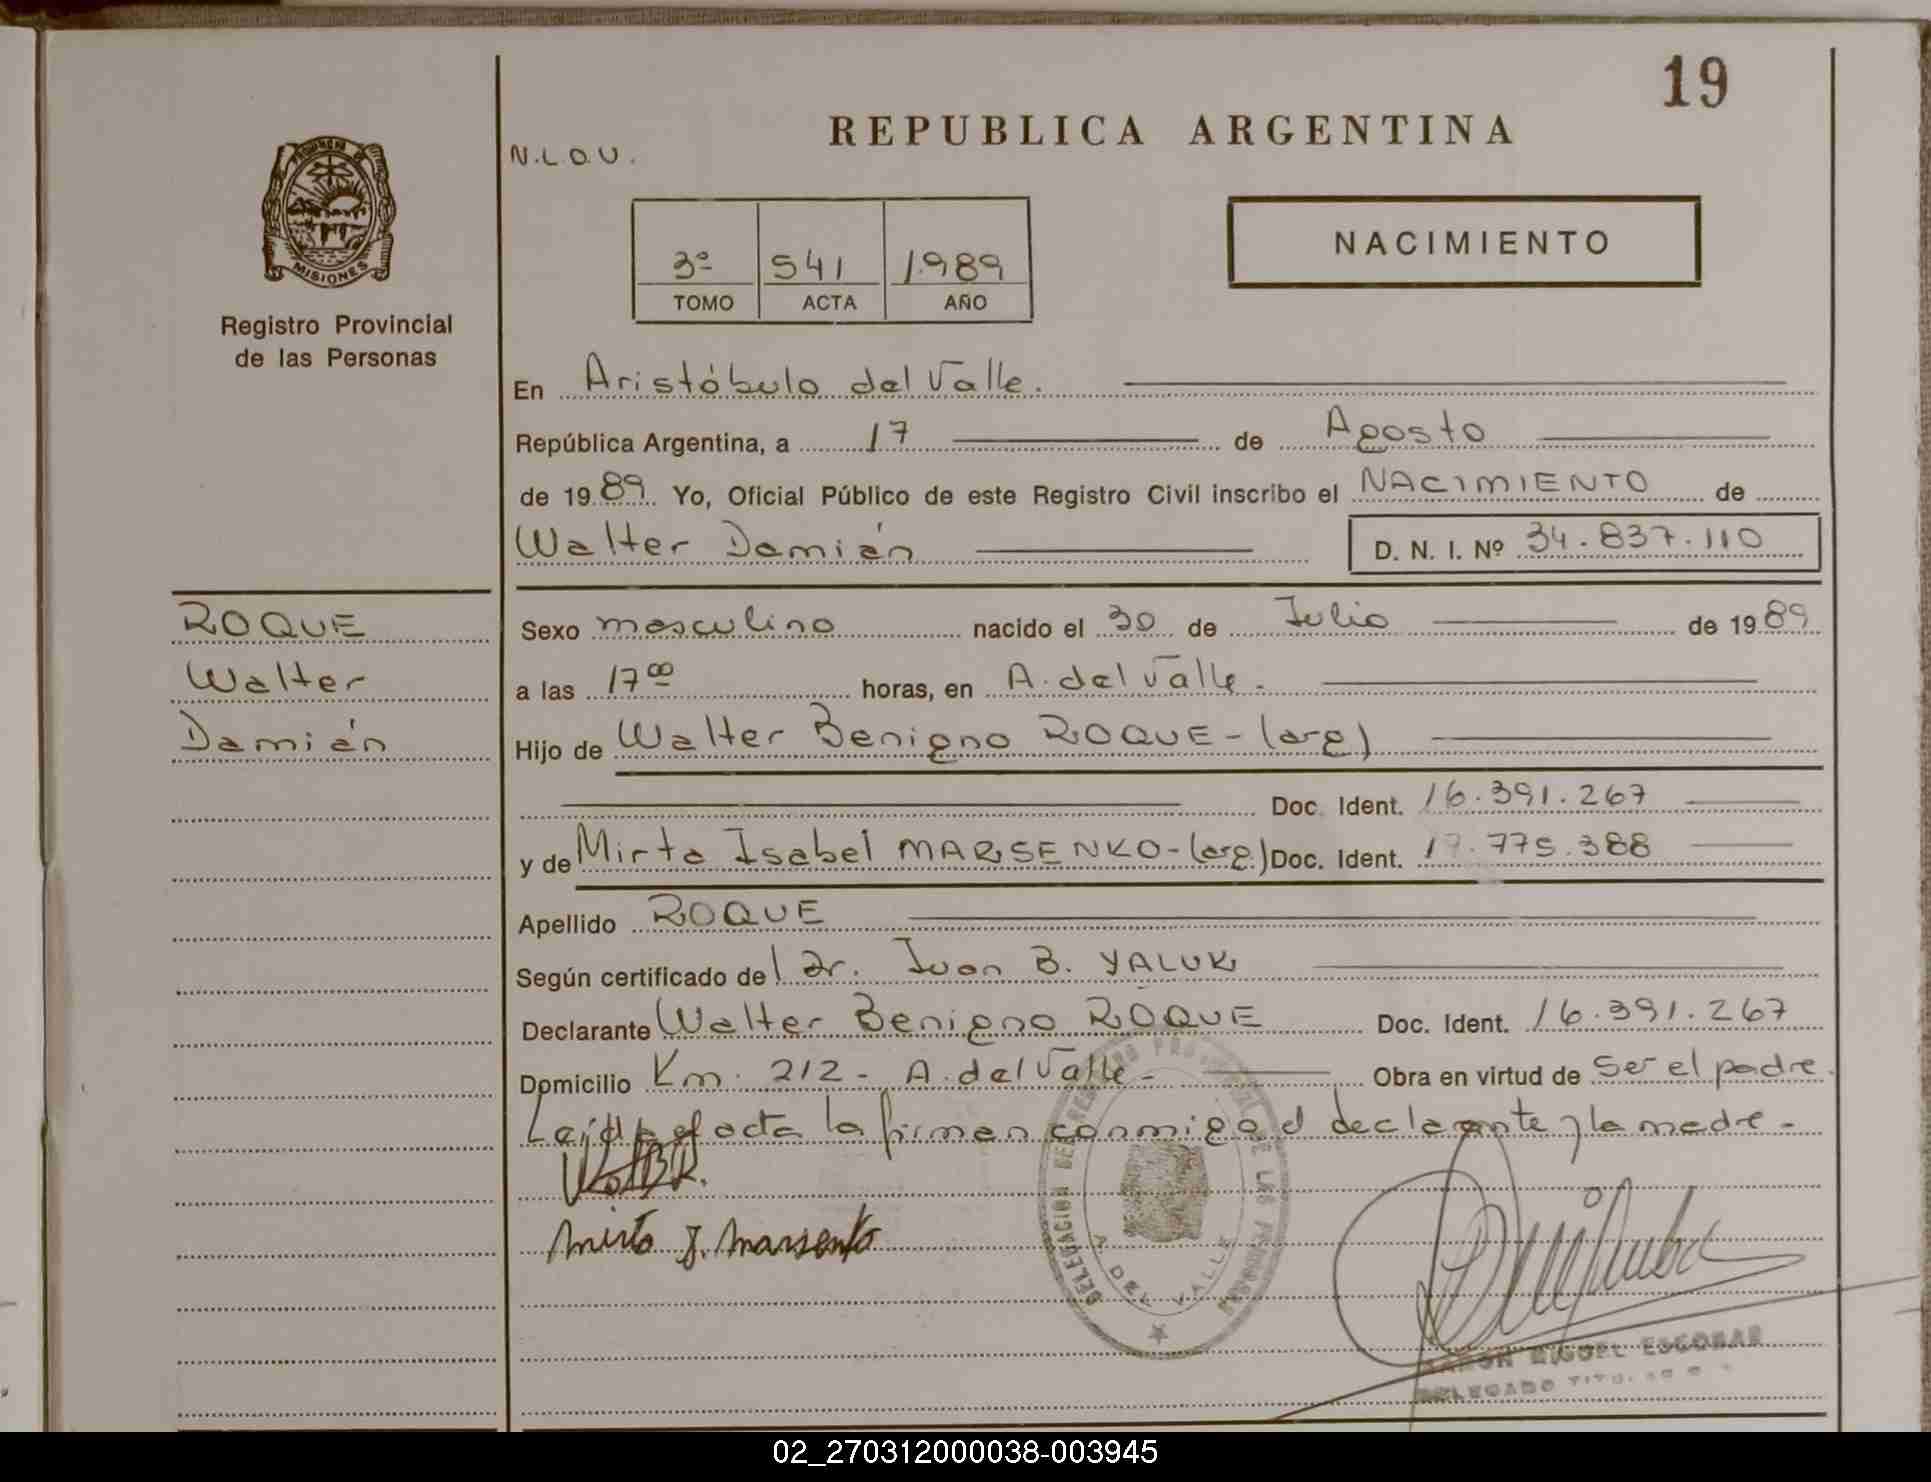 19
REPUBLICA ARGENTINA
N.L.O.U.
PROVINCIA DE
MISIONES
Registro Provincial
de las Personas
3º 541 1.989
TOMO ACTA AÑO
NACIMIENTO
En Aristóbulo del Valle.
República Argentina, a 17 de Agosto
de 1989 Yo, Oficial Público de este Registro Civil inscribo el NACIMIENTO de
Walter Damián D. N. I. Nº 34.837.110
ROQUE
Walter
Damián
Sexo masculino nacido el 30 de Julio de 1989
a las 17 00 horas, en A. del Valle.
Hijo de Walter Benigno ROQUE - (arg)
Doc. Ident. 16.391.267
y de Mirta Isabel MARSENKO - (arg.) Doc. Ident. 17.775.388
Apellido ROQUE
Según certificado del Dr. Juan B. YALUK
Declarante Walter Benigno ROQUE Doc. Ident. 16.391.267
Domicilio Km. 212 - A. del Valle - Obra en virtud de ser el padre.
Leída el acta la firman conmigo el declarante y la madre -
Mirta I. Marsenko
DELEGACION DEL REGISTRO PROVINCIAL DE LAS PERSONAS
A. DEL VALLE
RAMON MIGUEL ESCOBAR
DELEGADO TITULAR
02_270312000038-003945